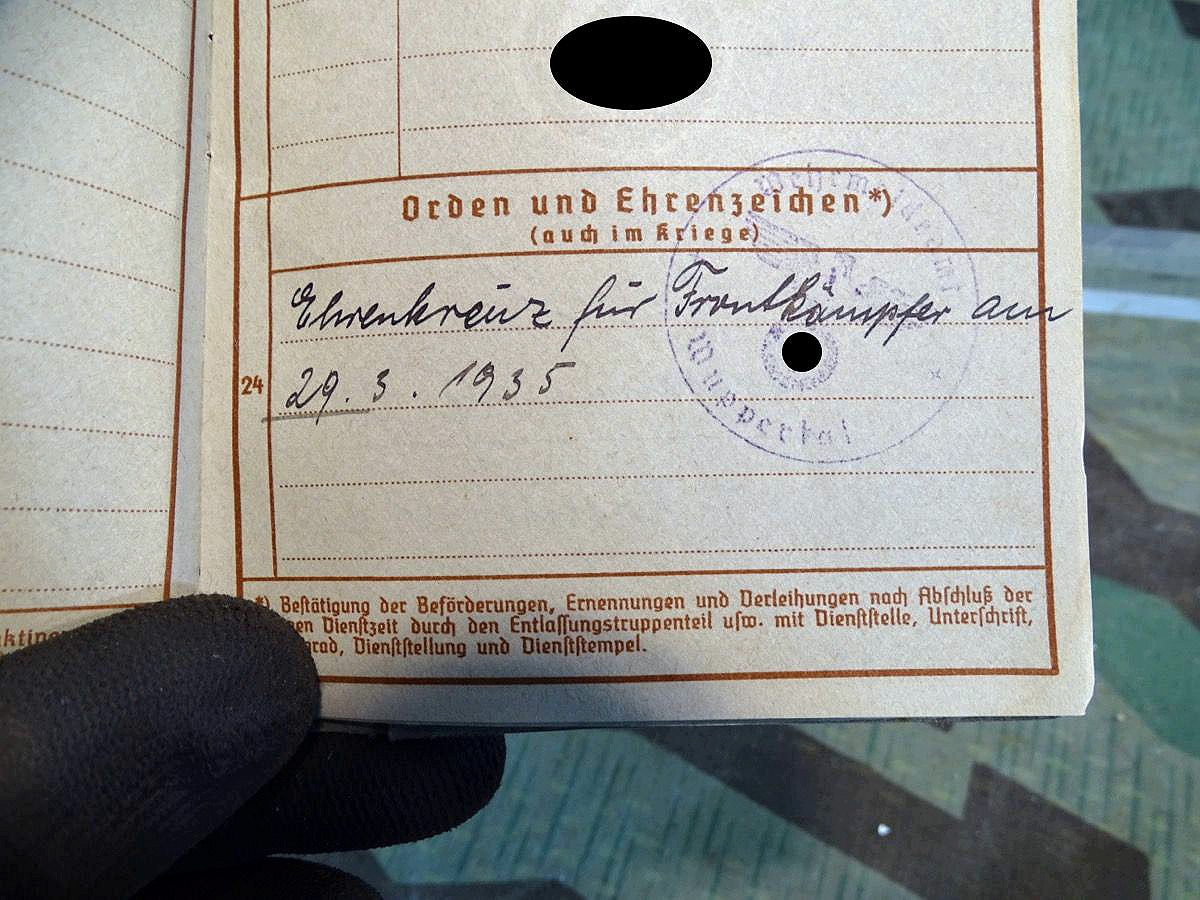 Orden und Ehrenzeichen*)
(auch im Kriege)
Ehrenkreuz für Frontkämpfer am
24
29. 3. 1935
Wuppertal
*) Bestätigung der Beförderungen, Ernennungen und Verleihungen nach Abschluß der
Dienstzeit durch den Entlassungstruppenteil usw. mit Dienststelle, Unterschrift,
Dienststellung und Dienststempel.